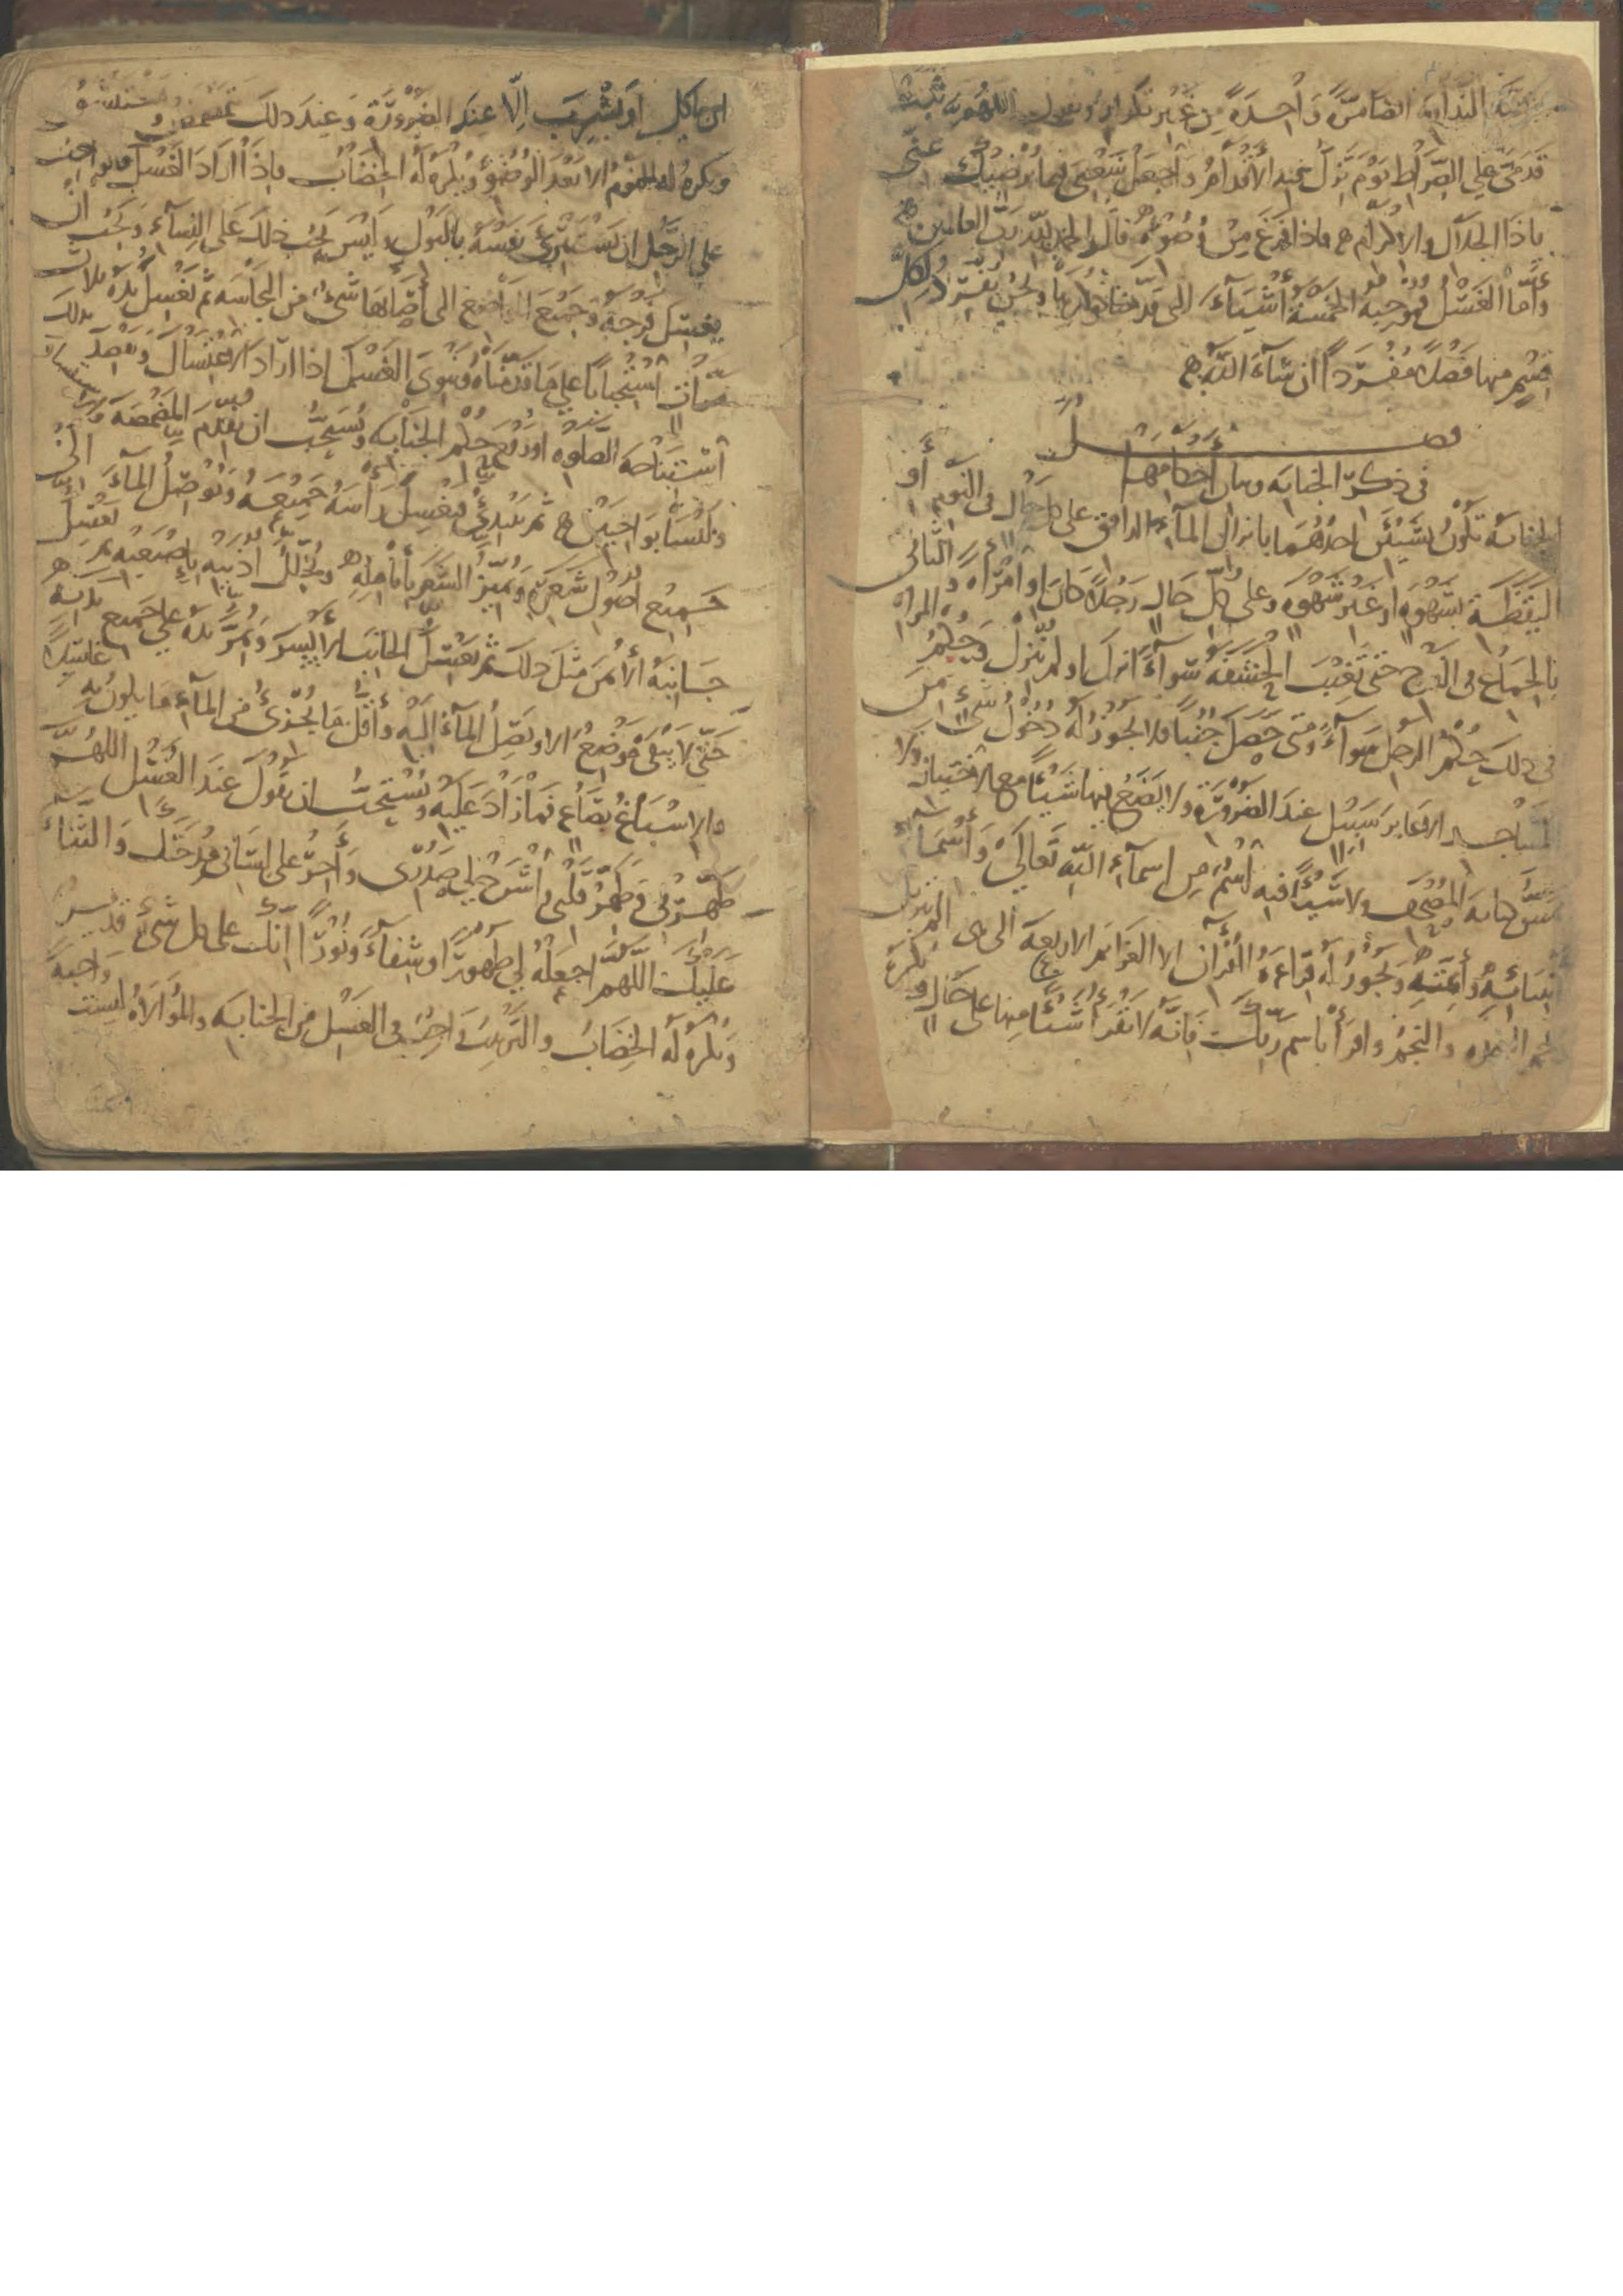 النداوة الفاضلة واحدة من غير تكرار ويقول اللهم ثبت
قدمي على الصراط يوم تزل فيه الاقدام واجعل سعيي فيما يرضيك عني
ياذا الجلال والاكرام فاذا فرغ من وضوئه قال الحمد لله رب العالمين
وأما الغسل فموجبه الخمسة أشياء التي قدمنا ذكرها ونحن نفرد لكل
قسم منها فصلا مفردا ان شاء الله
فصل
في ذكر الجنابة وبيان أحكامها
الجنابة تكون بشيئين احدهما بانزال الماء الدافق على كل حال في النوم أو
اليقظة بشهوة او غير شهوة وعلى كل حال رجلا كان او امرأة والثاني
بالجماع في الفرج حتى تغيب الحشفة سواء انزل او لم ينزل وحكم المراة
في ذلك حكم الرجل سواء ومتى حصل جنبا فلا يجوز له دخول شيء من
المساجد الا عابر سبيل عند الضرورة ولا يضع فيها شيئا مع الاختيار ولا
يمس كتابة المصحف ولا شيئا فيه اسم من اسماء الله تعالى وأسماء
انبيائه وأئمته ويجوز له قراءة القران الا العزائم الاربعة التي هي الم تنزيل
حم السجدة والنجم واقرأ باسم ربك فانه لا يقرأ شيئا منها على حال ويكره
ان ياكل او يشرب إلا عند الضرورة وعند ذلك تمضمض واستنشق
ويكره له النوم الا بعد الوضوء ويكره له الخضاب فاذا اراد الغسل فالواجب
على الرجل ان يستبرئ نفسه بالبول وليس يجب ذلك على النساء ويجب ان
يغسل فرجه وجميع المواضع التي أصابها شيء من النجاسة ثم يغسل يده ثلاث
مرات استحبابا على ما قدمناه وينوي الغسل اذا اراد الاغتسال ويقصد بذلك
استباحة الصلوة او رفع حكم الجنابة ويستحب ان يقدم المضمضة والاستنشاق
وليسا بواجبين ثم يبتدئ فيغسل رأسه جميعه ويوصل الماء الى
جميع اصول شعره ويميز الشعر بأنامله ويخلل اذنيه باصبعيه ثم يغسل
جانبه الأيمن مثل ذلك ثم يغسل الجانب الايسر ويمر يده على جميع بدنه
حتى لا يبقى موضع الا ويصل الماء اليه وأقل ما يجزئ من الماء ما يكون به غاسلا
والاسباغ بصاع فما زاد عليه ويستحب ان يقول عند الغسل اللهم
طهرني وطهر قلبي واشرح لي صدري وأجر على لساني مدحتك والثناء
عليك اللهم اجعله لي طهورا وشفاء ونورا انك على كل شيء قدير
ويكره له الخضاب والترتيب واجب في الغسل من الجنابة والموالاة ليست واجبة